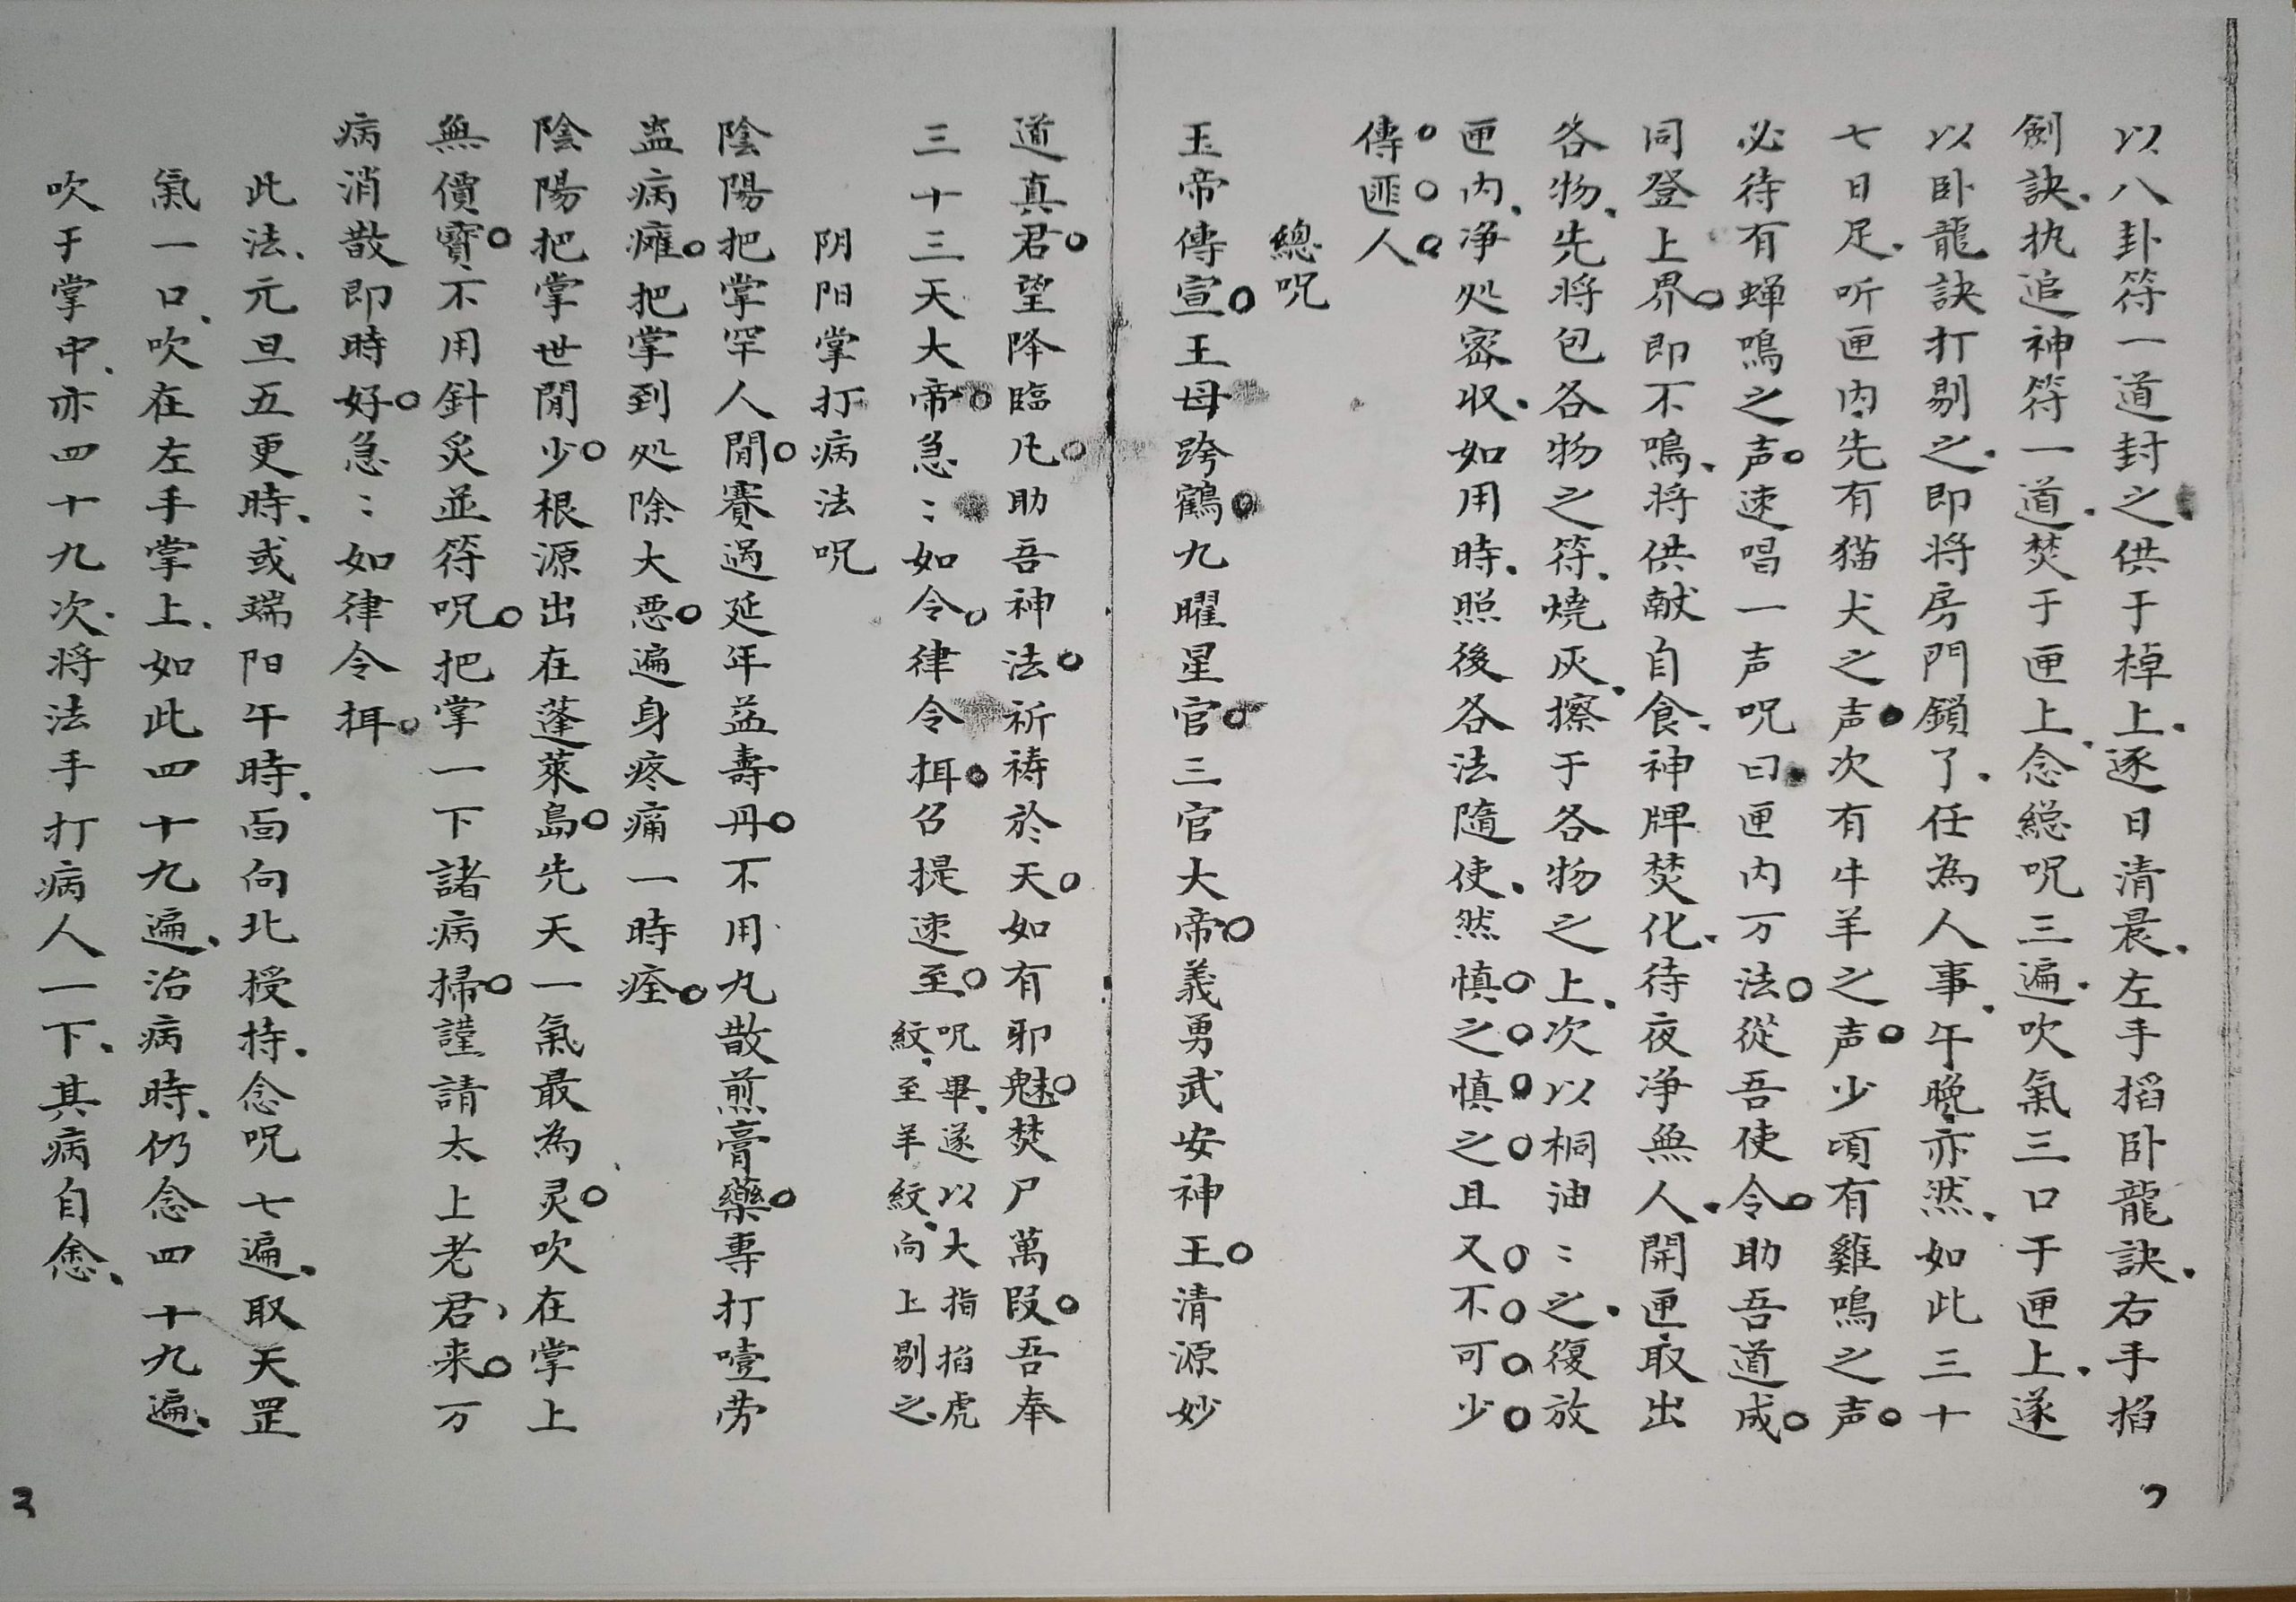 以八卦符一道封之供于棹上、逐日清晨、左手搯卧龍訣、右手掐
劍訣、执追神符一道、焚于匣上、念総呪三遍、吹氣三口于匣上、遂
以卧龍訣打剔之、即将房門鎖了、任為人事、午晚、亦然、如此三十
七日足、听匣内、先有猫犬之声。次有牛羊之声。少頃有雞鳴之声。
必待有蝉鳴之声。速唱一声呪曰。匣内万法。從吾使令。助吾道成。
同登上界。即不鳴、将供献自食、神牌焚化、待夜净無人、開匣取出
各物、先将包各物之符、燒灰、擦于各物之上、次以桐油：之、復放
匣内、净处密収、如用時、照後各法隨使、然慎。之。慎。之。且又。不。可。少。
傳。匪。人。
總呪
玉帝傳宣。王母跨鶴。九曜星官。三官大帝。義勇武安神王。清源妙
道真君。望降臨凡。助吾神法。祈祷於天。如有邪魅。焚尸萬段。吾奉
三十三天大帝。急：如令。律令挕。召提速至。呪畢、遂以大指掐虎紋、至羊紋、向上剔之、
阴阳掌打病法呪
陰陽把掌罕人閒。賽過延年益壽丹。不用丸散煎膏藥。專打噎劳
蛊病瘫。把掌到处除大恶。遍身疼痛一時痊。
陰陽把掌世閒少。根源出在蓬萊島。先天一氣最為灵。吹在掌上
無價寳。不用針炙並符呪。把掌一下諸病掃。謹請太上老君、来。万
病消散即時好。急：如律令挕。
此法、元旦五更時、或端阳午時、面向北授持、念呪七遍、取天罡
氣一口、吹在左手掌上、如此四十九遍、治病時、仍念四十九遍、
吹于掌中、亦四十九次、将法手打病人一下、其病自愈、
2
3